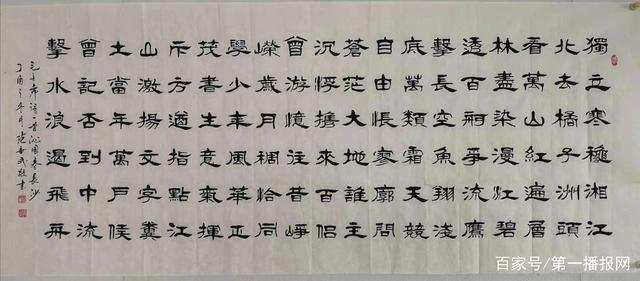 獨立寒穐湘江
北去橘子洲頭
看萬山紅遍層
林盡染漫江碧
透百舸爭流鷹
擊長空魚翔淺
底萬類霜天競
自由悵寥廓問
蒼茫大地誰主
沉浮攜來百侶
曾游憶往昔崢
嶸歲月稠恰同
學少年風華正
茂書生意氣揮
斥方遒指點江
山激揚文字糞
土當年萬戶侯
曾記否到中流
擊水浪遏飛舟
毛主席詩一首沁園春長沙
丁酉之冬月敬書
百家号/第一播报网